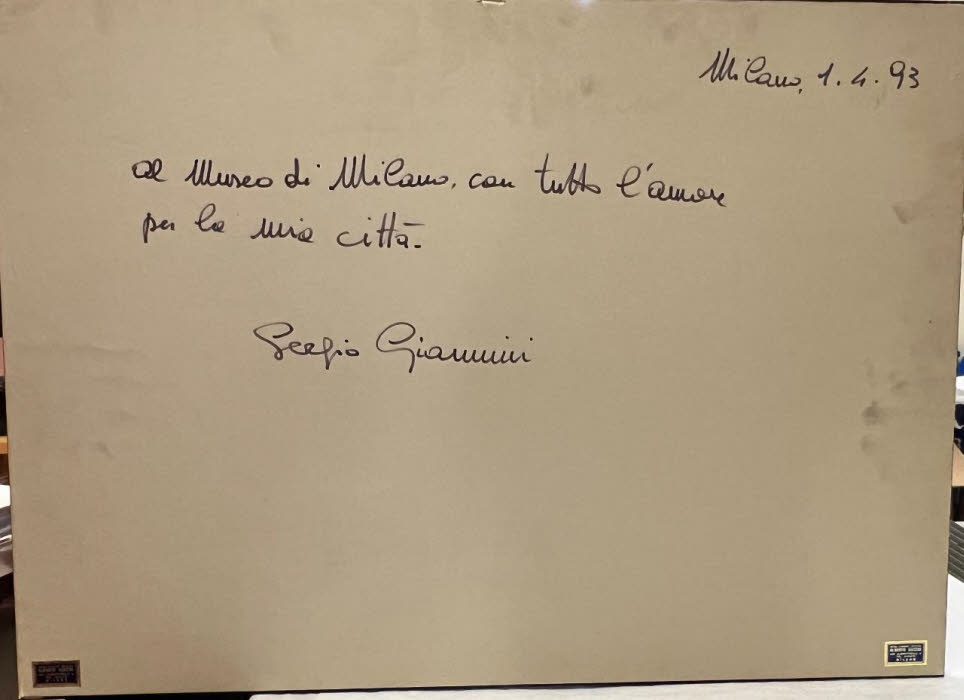 Milano, 1.4.93
al Museo di Milano, con tutto l'amore
per la mia città.
Sergio Giannini
MILANO